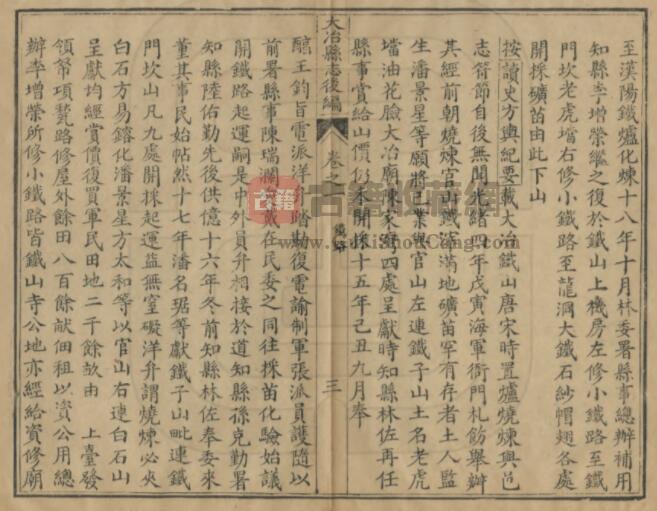 至漢陽鐵爐化煉十八年十月林委署縣事總辦補用
知縣李增榮繼之復於鐵山上機房左修小鐵路至鐵
門坎老虎壋右修小鐵路至龍洞大鐵石紗帽翅各處
開採礦苗由此下山
按讀史方輿紀要載大冶鐵山唐宋時置爐燒煉與邑
志符節自後無聞光緒四年戊寅海軍衙門札飭舉辦
其經前朝燒煉官山鐵滓滿地礦苗罕有存者土人監
生潘景星等願將山業無官山左連鐵子山土名老虎
壋油花臉大冶廟陳家灣四處呈獻時知縣林佐再任
縣事賞給山價仍未開採十五年己丑九月奉
大冶縣志後編
卷之一
三
醇王鈞旨電派洋 踏勘復電諭制軍張派員護隨以
前署縣事陳瑞瀾 戴在民委之同往採苗化驗始議
開鐵路起運嗣是中外員弁相接於道知縣孫克勤署
知縣陸佑勤先後供億十六年冬前知縣林佐奉委來
董其事民始帖然十七年潘名琚等獻鐵子山毗連鐵
門坎山凡九處開採起運益無窒礙洋弁謂燒煉必夾
白石方易鎔化潘景星方太和等以官山右連白石山
呈獻均經賞價復買軍民田地二千餘故由 上臺發
領帑項甃路修屋外餘田八百餘献佃租以資公用總
辦李增榮所修小鐵路皆鐵山寺公地亦經給資修廟
古籍收藏网
www.gujishoucang.com
古籍